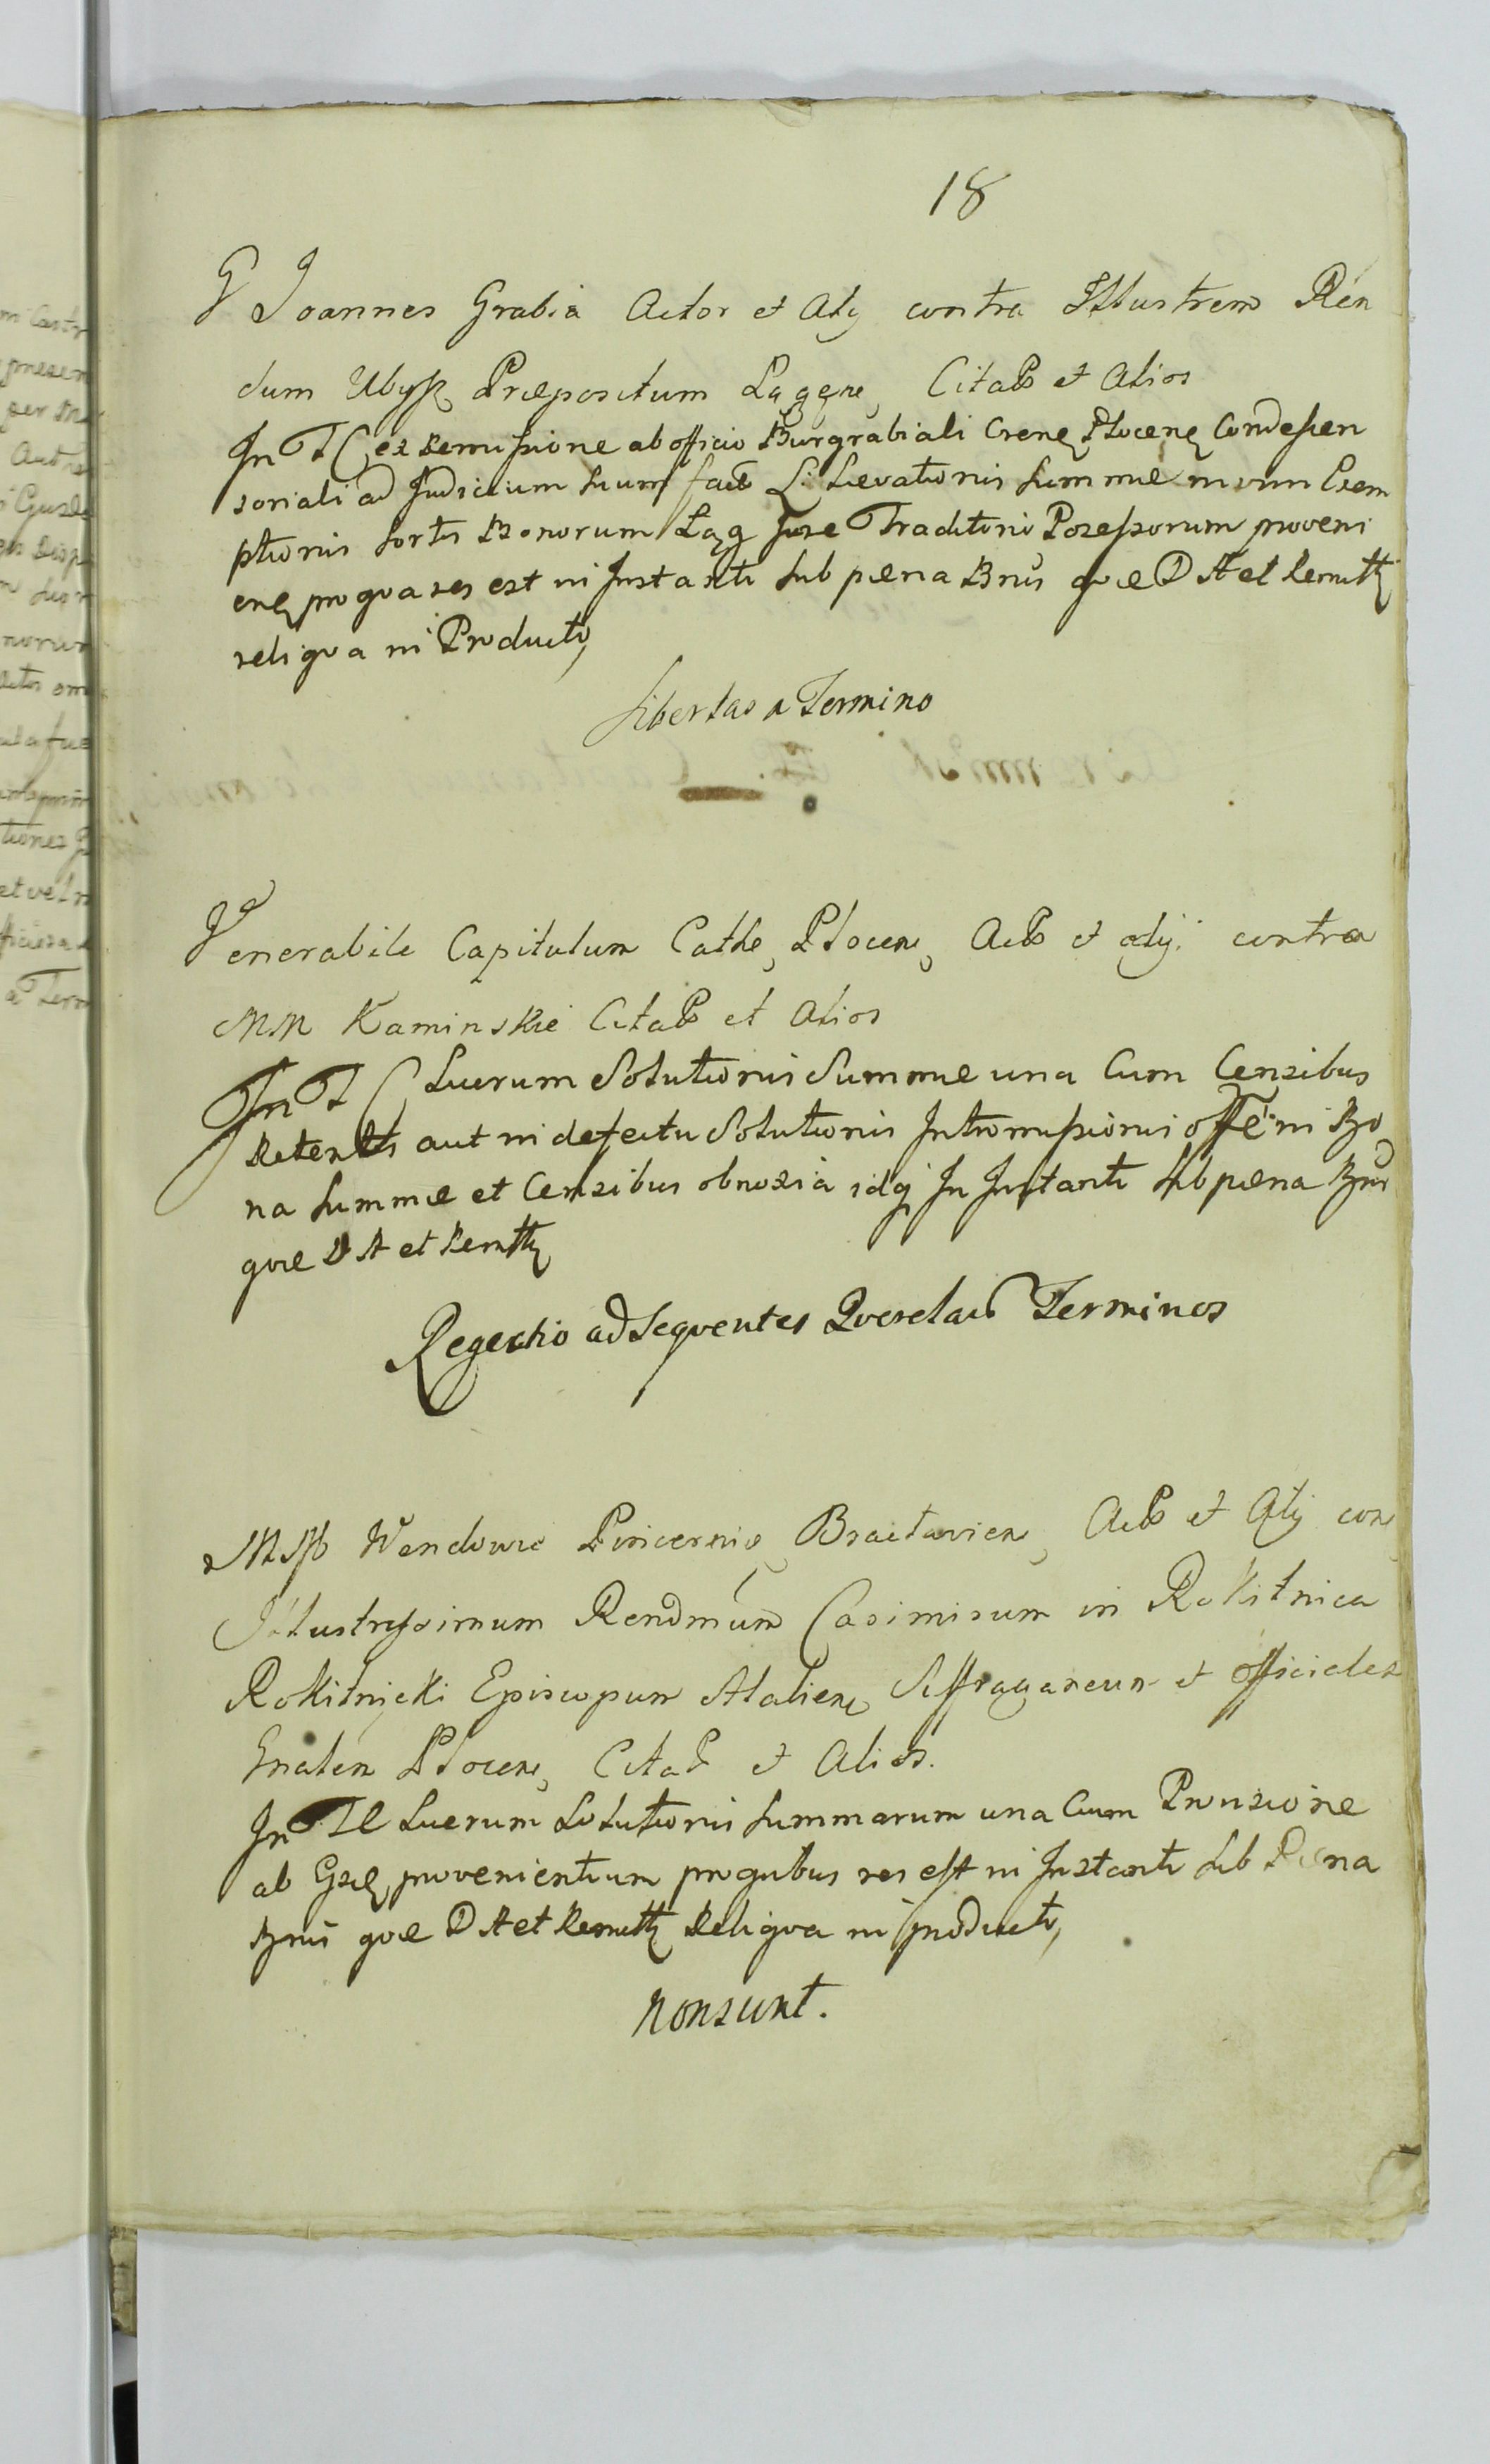 18
G Joannes Grabia Actor et Alij contra Illustrem Ren
dum Ubysz Præpositum Łąģen, Citato et Alios
In T C ex Remissione ab officio Burgrabiali Crenę Plocenę Condescen
soriali ad Judicium suum facto Levationis summæ in vim Exem
ptionis sortis Bonorum Łąg Jure Traditorio Possessorum proveni
enę pro qua res est in Instanti sub pæna Bnis quæ D A et Remitte
reliqua in Producto,
Libertas a Termino
Venerabile Capitulum Cathe, Plocen, Acto et alij contra
MM Kaminskie Citato et Alios
In T C Lucrum Solutionis Summæ una Cum Censibus
Retentis aut in defectu Solutionis Intromissionis offe in Bo
na summæ et Censibus obnoxia idq In Instanti sub pæna Bnis
quæ D A et Remitte
Regectio ad Sequentes Querelarum Terminos
Wendowie Pincernio Bractavien, Acto et Alij con
Illustrissimum Rendmum Casimirum in Rokitnica
Rokitnicki Episcopum Atalien, Suffraganeum et officialem
Gnalem Plocen, Citato et Alios.
In T C Lucrum Solutionis summarum una Cum Provisione
ab Gsię provenientium pro quibus res est in Instanti sub Pæna
Bnis quæ D A et Remitte Reliqua in producto,
non sunt.